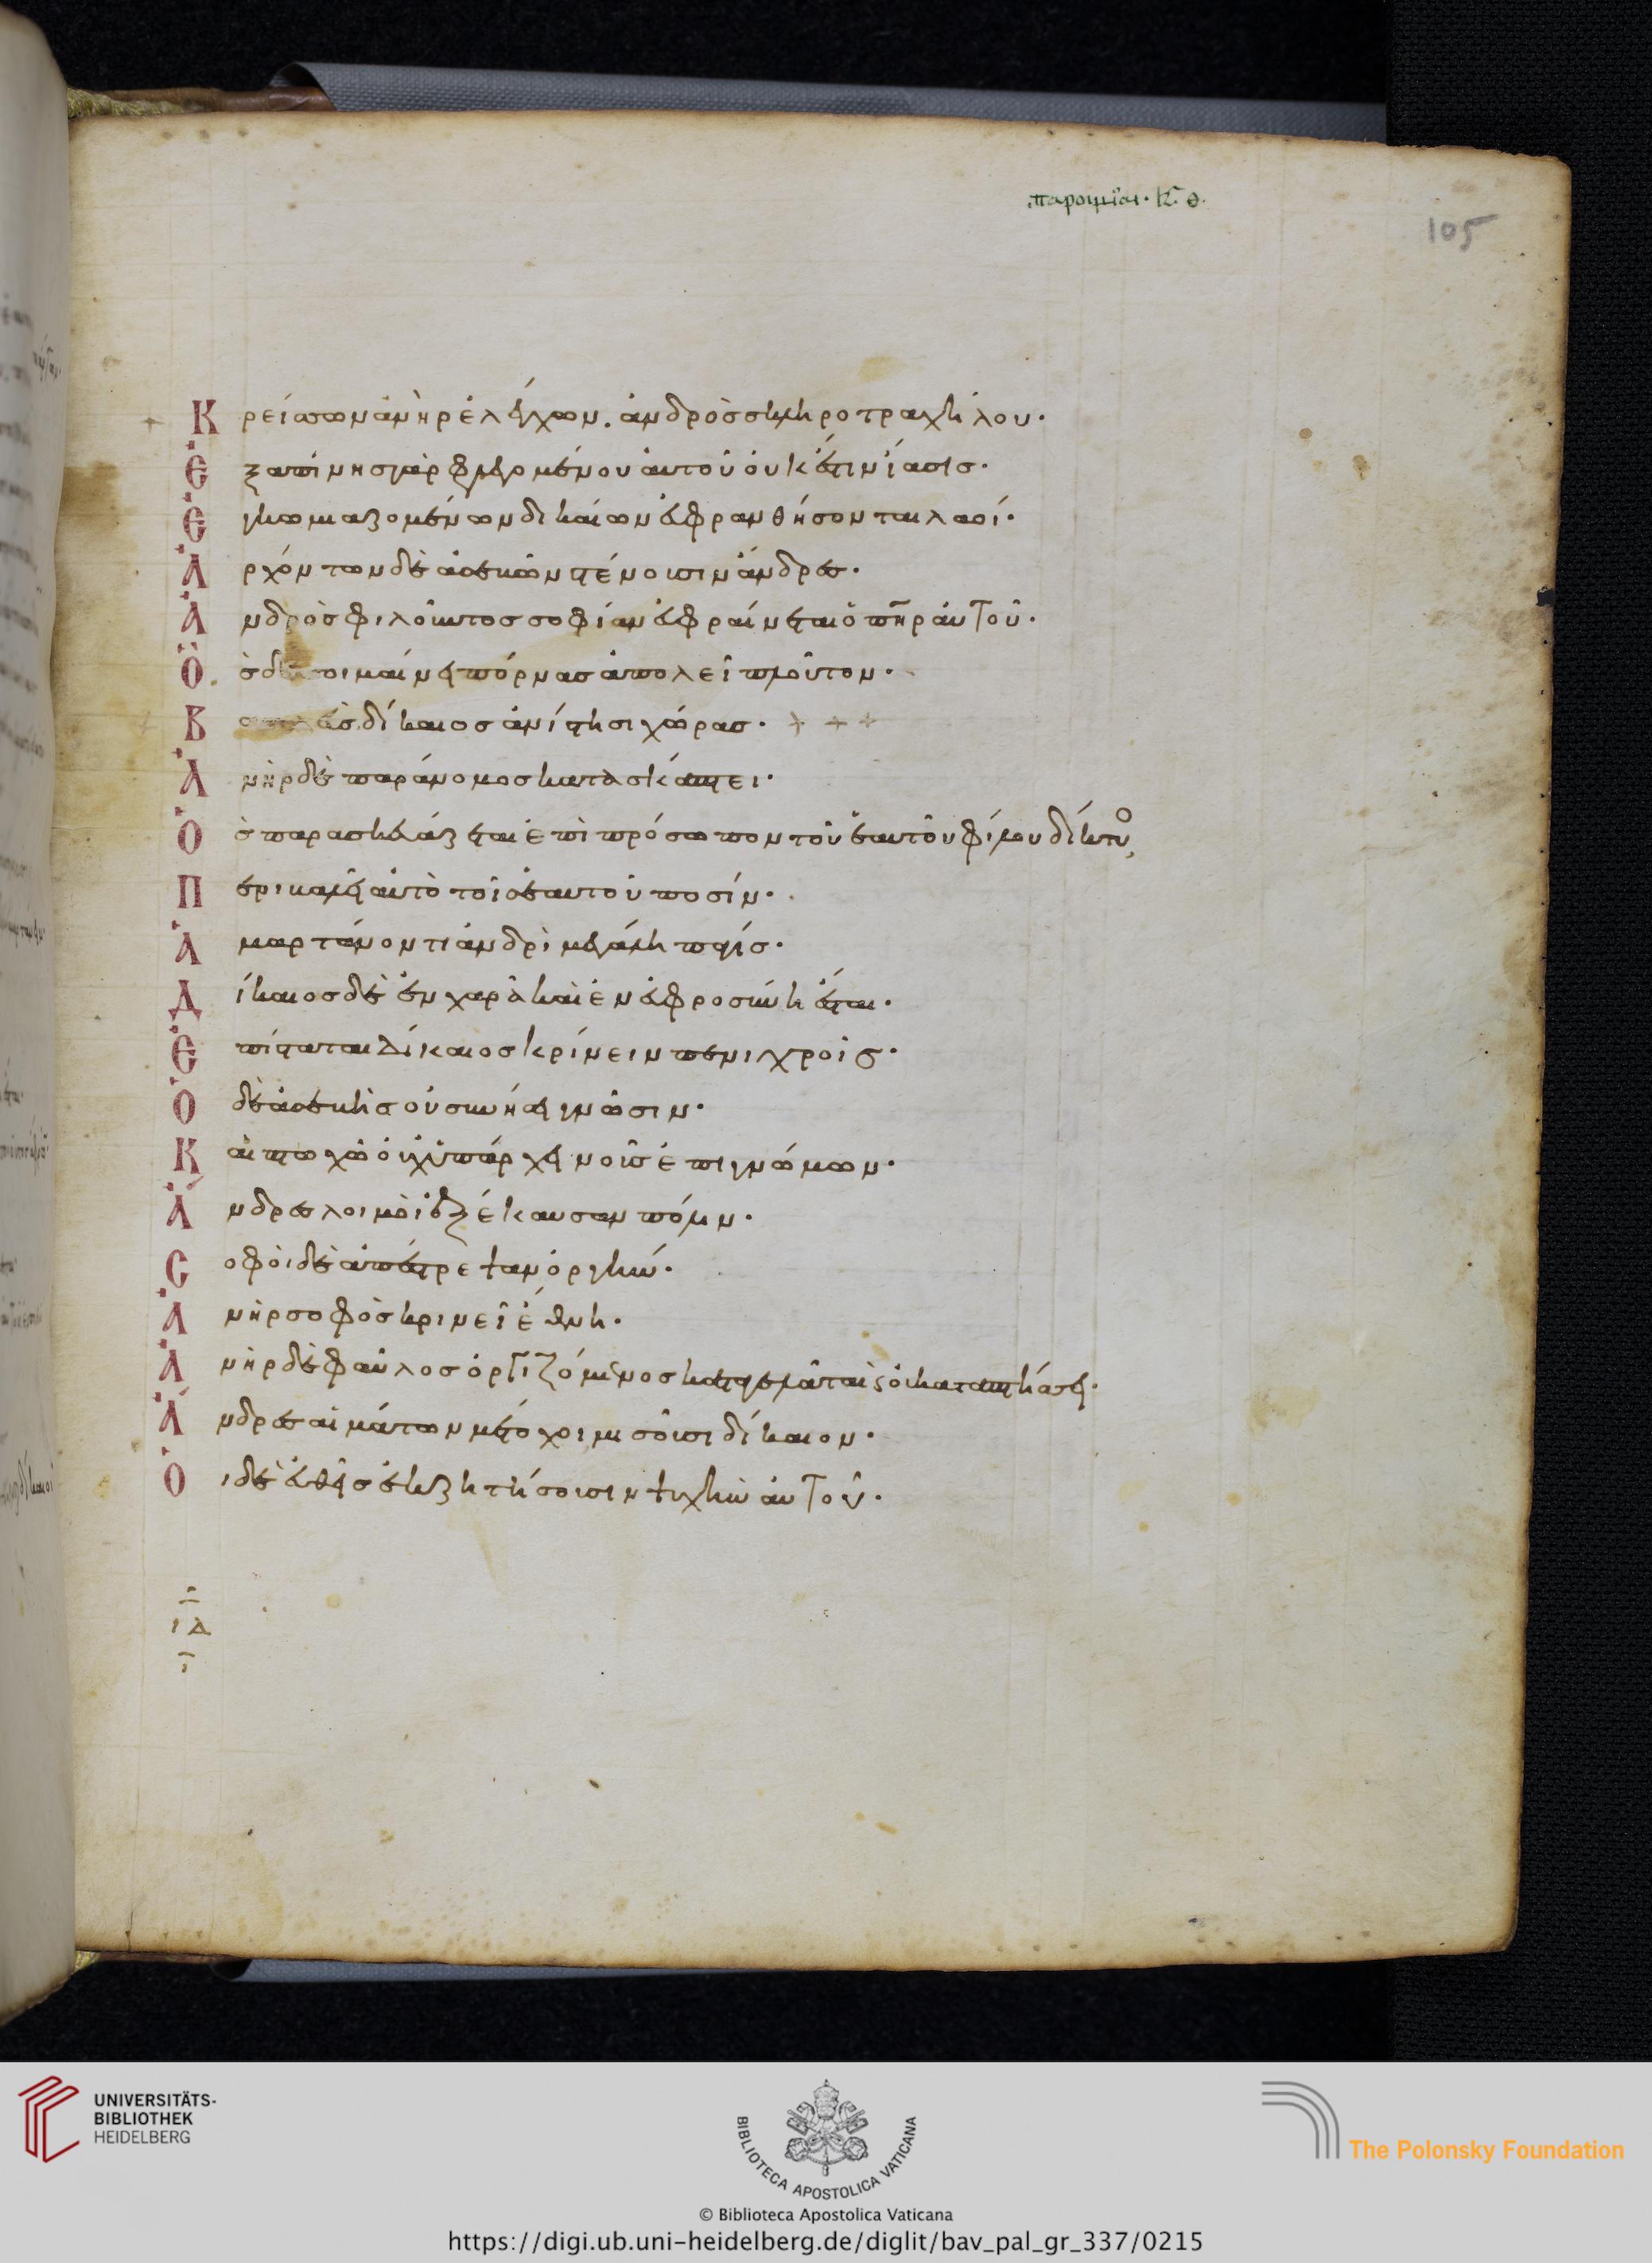 παροιμίαι· κ̅ θ·
105
Κρείσσων ἀνὴρ ἐλέγχων. ἀνδρὸς σκληροτραχήλου·
Ἐξαπίνης γὰρ φλεγομένου αὐτοῦ οὐκ ἔστιν ἴασις·
Ἐγκωμιαζομένων δικαίων εὐφρανθήσονται λαοί·
Ἀρχόντων δὲ ἀσεβῶν στένουσιν ἄνδρες·
Ἀνδρὸς φιλοῦντος σοφίαν εὐφραίνεται ὁ πῆρ αὐτοῦ·
Ὃς δὲ ποιμαίνει πόρνας ἀπολεῖ πλοῦτον·
Βασιλεὺς δίκαιος ἀνίστησι χώρας· + + +
Ἀνὴρ δὲ παράνομος κατασκάπτει·
Ὃς παρασκευάζεται ἐπὶ πρόσωπον τοῦ ἑαυτοῦ φίλου δίκτυο
Περιβαλεῖ αὐτὸ τοῖς ἑαυτοῦ ποσίν·
Ἁμαρτάνοντι ἀνδρὶ μεγάλη παγίς·
Δίκαιος δὲ ἐν χαρᾷ καὶ ἐν εὐφροσύνη ἔσται·
Ἐπίσταται δίκαιος κρίνειν πενιχροῖς·
Ὁ δὲ ἀσεβὴς οὐ συνήσει γνῶσιν·
Καὶ πτωχῶ οὐχ ὑπάρχει νοῦς ἐπιγνώμων·
Ἄνδρες λοιμοὶ ἐξέκαυσαν πόλιν·
Σοφοὶ δὲ ἀπέστρεψαν ὀργήν·
Ἀνὴρ σοφὸς κρινεῖ ἔθνη·
Ἀνὴρ δὲ φαῦλος ὀργιζόμενος καταγελᾶται ς οὐ καταπτήσσει·
Ἄνδρες αἱμάτων μέτοχοι μισοῦσι δίκαιον·
Οἱ δὲ εὐθεῖς ἐκζητήσουσιν ψυχὴν αὐτοῦ·
ια
UNIVERSITÄTS-
BIBLIOTHEK
HEIDELBERG
BIBLIOTECA APOSTOLICA VATICANA
The Polonsky Foundation
© Biblioteca Apostolica Vaticana
https://digi.ub.uni-heidelberg.de/diglit/bav_pal_gr_337/0215